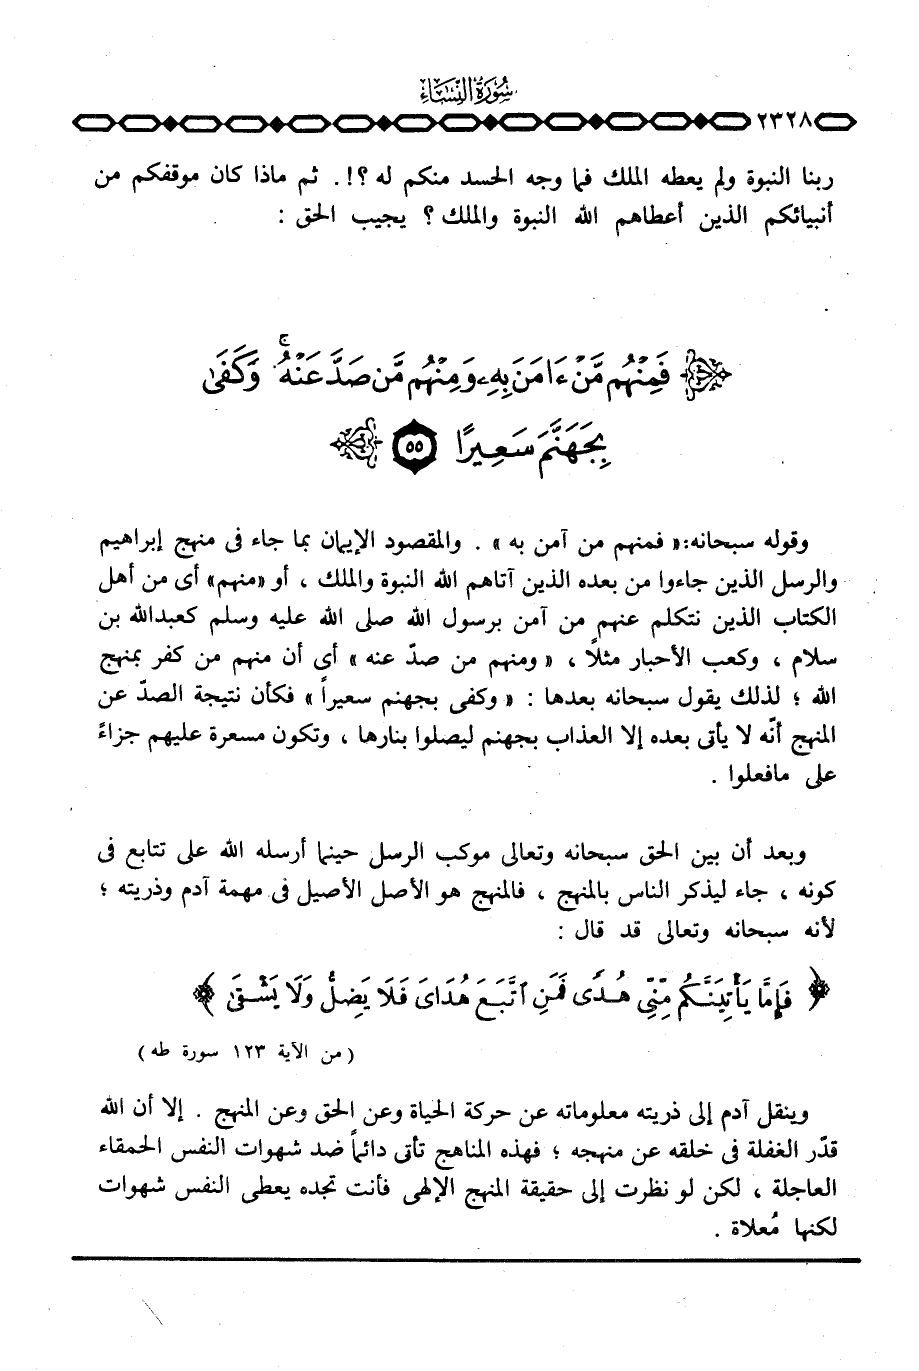 سورة النساء
٢٣٢٨
ربنا النبوة ولم يعطه الملك فما وجه الحسد منكم له ؟!. ثم ماذا كان موقفكم من
أنبيائكم الذين أعطاهم الله النبوة والملك ؟ يجيب الحق :
فَمِنْهُم مَّنْ ءَامَنَ بِهِۦ وَمِنْهُم مَّن صَدَّ عَنْهُ ۚ وَكَفَىٰ
بِجَهَنَّمَ سَعِيرًا ٥٥
وقوله سبحانه:« فمنهم من آمن به » . والمقصود الإيمان بما جاء فى منهج إبراهيم
والرسل الذين جاءوا من بعده الذين آتاهم الله النبوة والملك ، أو «منهم» أى من أهل
الكتاب الذين نتكلم عنهم من آمن برسول الله صلى الله عليه وسلم كعبدالله بن
سلام ، وكعب الأحبار مثلًا ، « ومنهم من صدّ عنه » أى أن منهم من كفر بمنهج
الله ؛ لذلك يقول سبحانه بعدها : « وكفى بجهنم سعيراً » فكأن نتيجة الصدّ عن
المنهج أنّه لا يأتى بعده إلا العذاب بجهنم ليصلوا بنارها ، وتكون مسعرة عليهم جزاءً
على مافعلوا .
وبعد أن بين الحق سبحانه وتعالى موكب الرسل حينما أرسله الله على تتابع فى
كونه ، جاء ليذكر الناس بالمنهج ، فالمنهج هو الأصل الأصيل فى مهمة آدم وذريته ؛
لأنه سبحانه وتعالى قد قال :
﴿ فَإِمَّا يَأْتِيَنَّكُم مِّنِّي هُدًى فَمَنِ ٱتَّبَعَ هُدَاىَ فَلَا يَضِلُّ وَلَا يَشْقَىٰ ﴾
( من الآية ١٢٣ سورة طه )
وينقل آدم إلى ذريته معلوماته عن حركة الحياة وعن الحق وعن المنهج . إلا أن الله
قدّر الغفلة فى خلقه عن منهجه ؛ فهذه المناهج تأتى دائماً ضد شهوات النفس الحمقاء
العاجلة ، لكن لو نظرت إلى حقيقة المنهج الإلهى فأنت تجده يعطى النفس شهوات
لكنها مُعلاة .